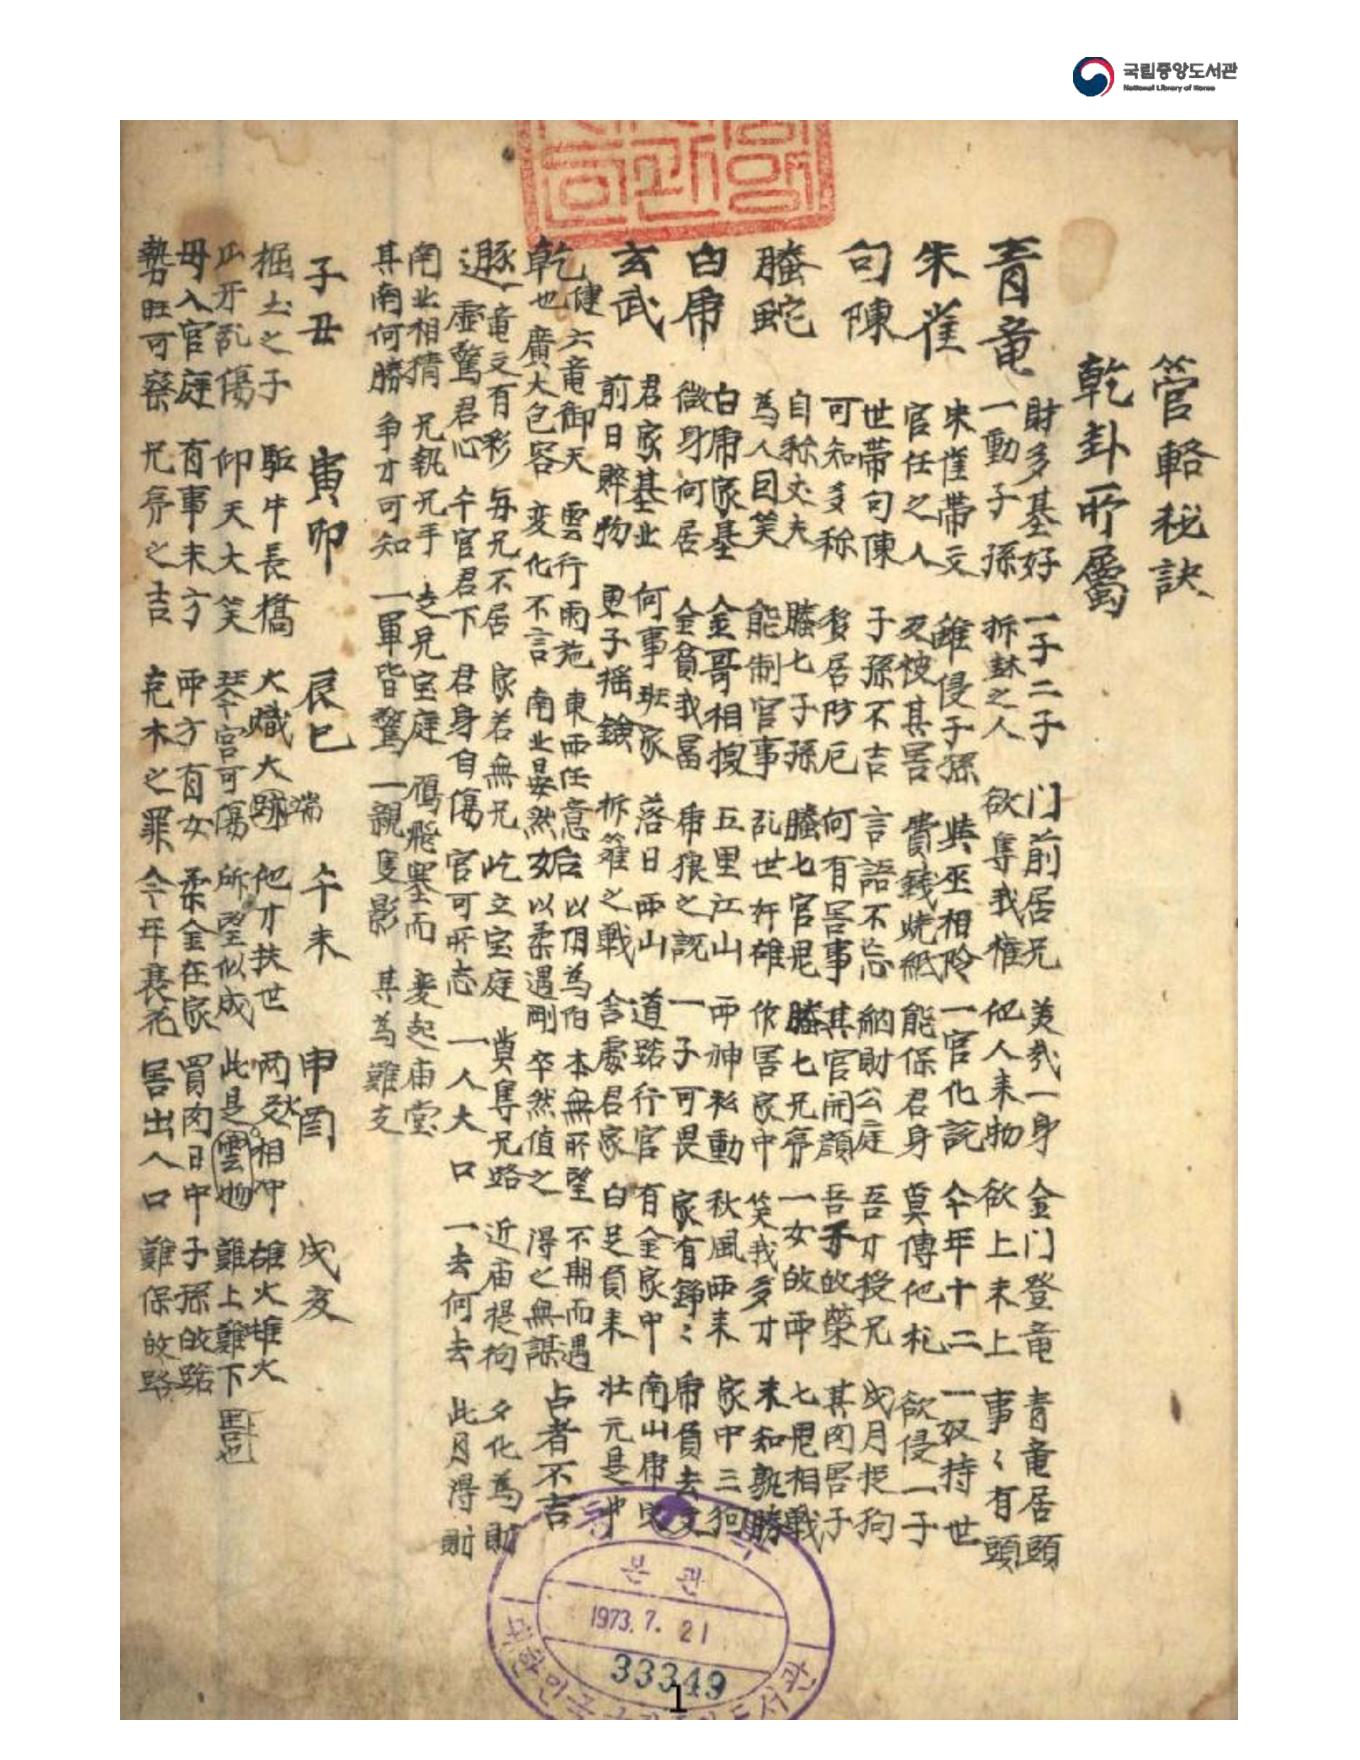 국립중앙도서관
National Library of Korea
管輅秘訣
乾卦所屬
青竜 財多基好 一子二子 门前居兄 美哉一身 金门登竜 青竜居頭
一動子孫 折 之人 欲奪我権 他人来物 欲上未上 事〻有頭
朱雀 朱雀帯文 雖侵子孫 巫相 一官化説 今年十二 一双持世
官任之人 又被其害 費錢燒紙 能保君身 莫傳他札 欲侵一子
句陳 世帶句陳 子孫不吉 言語不忘 納財公庭 吾才授兄 戌月捉狗
可知多称 移居防厄 何有害事 其官開顔 吾手的榮 其肉害子
螣蛇 自称丈夫 螣七子孫 螣七官鬼 螣七兄弟 一女的両 七鬼相戰
為人回笑 能制官事 乱世奸雄 作害家中 笑我多才 未知孰勝
白虎 白虎家基 金哥相搜 五里江山 両神私動 秋風西来 家中三狗
微身何居 金負我冨 虎狼之説 一子可畏 家有錚〻 虎負去文
玄武 君家基业 何事 家 落日西山 道路行官 有金家中 南山虎
前日 物 更子搖 折籬之戰 舍處君家 白足負来 壮元是
乾健也 六竜御天 雲行雨施 東西任意 以 為 本無所望 不期而遇 占者不吉
廣大包容 変化不言 南北晏然 以柔遇剛 卒然值之 得之無謀
豚一竜文有彩 每兄不居 家若無兄 屹立宝庭 莫奪兄路 近庙提狗 夕化為財
遜 虛驚君心 午官君下 君身自傷 官可所忘 一人大口 一去何去 此月得財
南北相猜 兄執兄手 兄宝庭 雁飛塞而 妾起庙堂
其南何勝 争才可知 一軍皆驚 一親隻影 其為難支
子丑 寅卯 辰巳 午未 申酉 戌亥
掘土之子 駈牛長橋 大熾大 端 他才扶世 两火相冲 雄火雄火
牙乱傷 仰天大笑 琴宮可傷 所望似成 此是雲物 難上難下
母入官庭 有事未方 西方有女 柔金在家 買肉日中 子孫的路
勢旺可察 兄弟之吉 克木之罪 今年喪花 害出人口 難保的路
본관
1973. 7. 21
33349
1